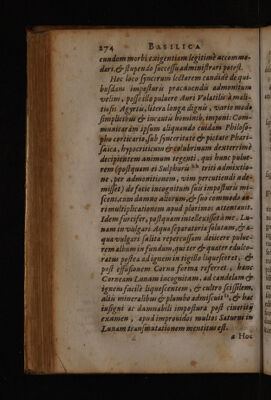 274 BASILICA
eundem morbi exigentiam legitimè accommo-
dari, & stupendo successu administrari potest.
Hoc loco syncerum lectorem candidè de qui-
busdam impostoris præcavendis admonitum
velim, posse illo pulvere Auri Volatilis à mali-
tiosis Agyrtis, litera longa dignis, vario modo
simplicibus & incautis hominib. imponi. Com-
munitaram ipsum aliquando cuidam Philoso-
pho corticario, sub synceritate & pietate Phari-
saica, hypocriticum & colubrinum dexterrimè
decipientem animum tegenti, qui hunc pulve-
rem (postquam ei Sulphuris triti admixtio-
ne, per admonitionem, vim percutiendi ade-
misset) de facie incognitum suis imposturis mi-
scens, cum damno aliorum, & suo commodo au-
ri multiplicationem apud plurimos attentant.
Idem furcifer, postquam intellexisset à me, Lu-
nam in vulgari Aqua separatoria solutam, & a-
qua vulgari salita repercussam deiicere pulve-
rem album in fundum, qui ter & quater edulco-
ratus postea ad ignem in vigillo liquesceret, &
post effusionem Cornu forma referret, hanc
Corneam Lunam incognitam, ad candelam &
ignem facilè liquescentem, & cultro scissilem,
aliis mineralibus & plumbo admiscuit, & hac
insigni ac damnabili impostura post cineritij
examen, apud improvidos multos Saturni in
Lunam transmutationem mentitus est.
a Hoc